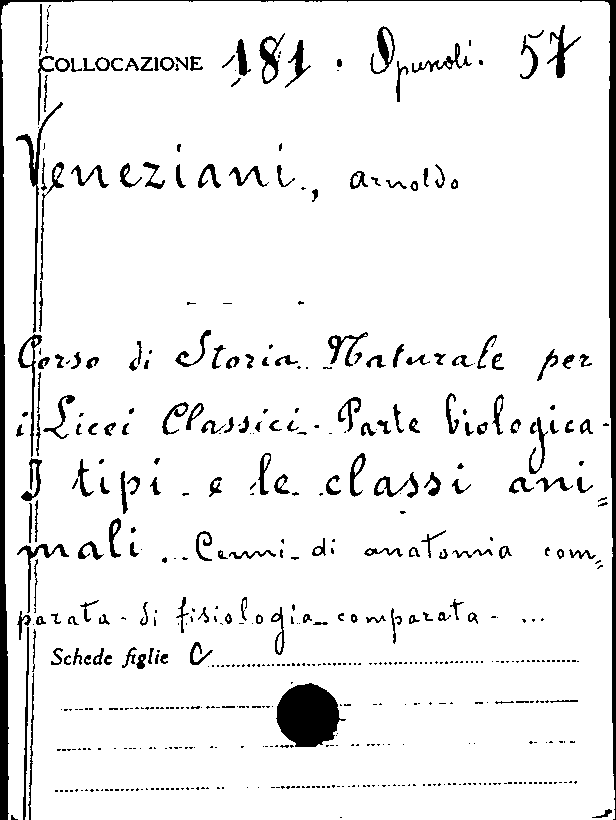 COLLOCAZIONE 181. Opuscoli. 57
Veneziani, Arnoldo
Corso di Storia Naturale per
i Licei Classici. Parte biologica.
I tipi e le classi ani=
mali. Cenni di anatomia com=
parata - di fisiologia comparata - ...
Schede figlie C